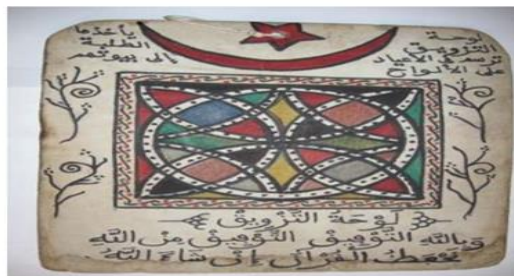 لوحة
التزويق
ترسم في الأعياد
على الألواح
يأخذها
الطلبة
إلى بيوتهم
لوحة التزويق
وبالله التوفيق التوفيق من الله
القرآن إن شاء الله